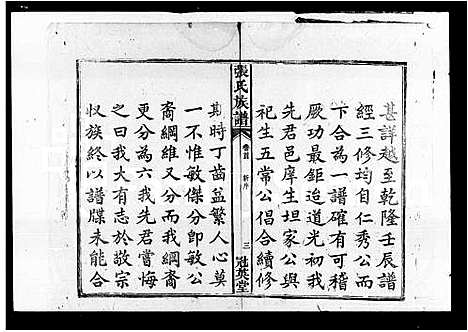 甚詳越至乾隆壬辰譜
經三修均自仁秀公而
下合為一譜確有可稽
厥功最鉅迨道光初我
先君邑庠生坦家公與
祀生五常公倡合續修
張氏族譜
卷首
新序
三
冠英堂
斯時丁齒益繁人心莫
一不惟敏傑分卽敏公
裔綱維又分我綱裔
更分為六我先君嘗悔
之曰我大有志於敬宗
收族終以譜牒未能合